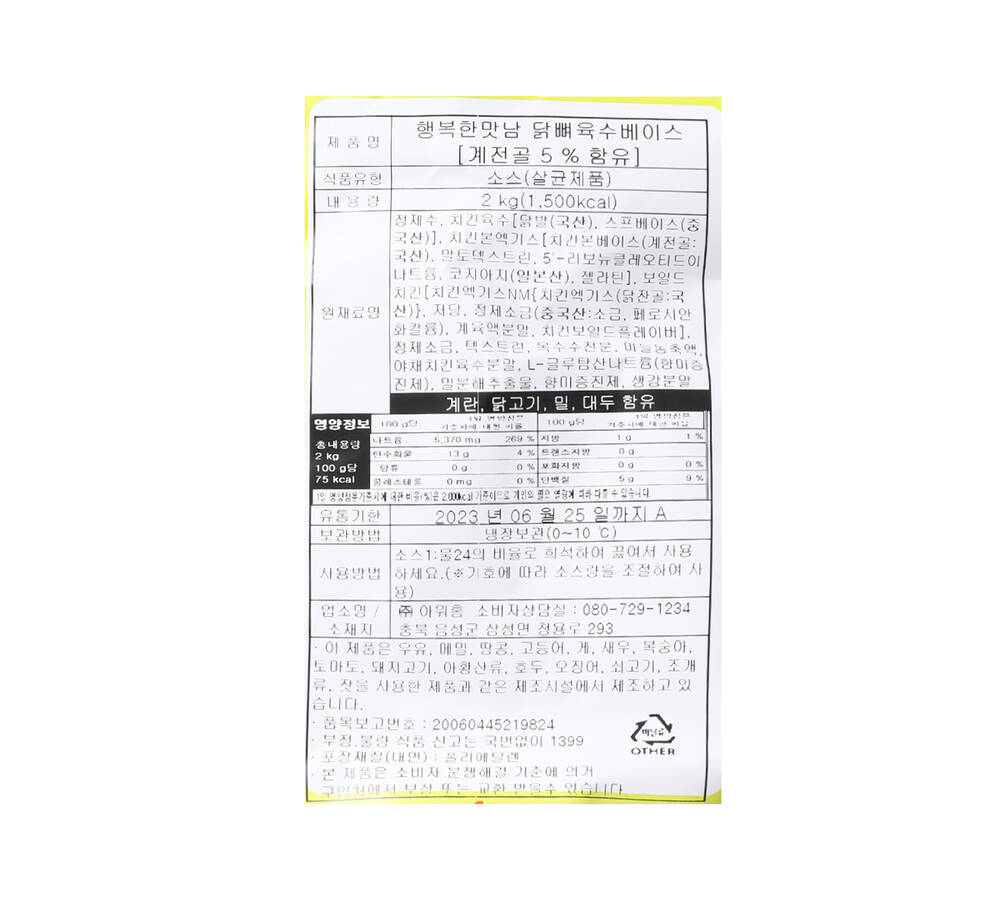 제품명 행복한맛남 닭뼈육수베이스
[계전골 5 % 함유]
식품유형 소스(살균제품)
내용량 2 kg(1,500kcal)
원재료명 정제수, 치킨육수[닭발(국산), 스프베이스(중
국산)], 치킨본엑기스[치킨본베이스(계전골:
국산), 말토덱스트린, 5'-리보뉴클레오티드이
나트륨, 코지아지(일본산), 젤라틴], 보일드
치킨[치킨엑기스NM{치킨엑기스(닭잔골:국
산)}, 저당, 정제소금(중국산:소금, 페로시안
화칼륨), 계육액분말, 치킨보일드플레이버],
정제소금, 덱스트린, 옥수수전분, 마늘농축액,
야채치킨육수분말, L-글루탐산나트륨(향미증
진제), 밀분해추출물, 향미증진제, 생강분말
계란, 닭고기, 밀, 대두 함유
영양정보 100 g당 1일 영양성분 기준치에 대한 비율 100 g당 1일 영양성분 기준치에 대한 비율
총내용량 2 kg 100 g당 75 kcal
나트륨 5,370 mg 269 % 지방 1 g 1 %
탄수화물 13 g 4 % 트랜스지방 0 g
당류 0 g 0 % 포화지방 0 g 0 %
콜레스테롤 0 mg 0 % 단백질 5 g 9 %
1일 영양성분기준치에 대한 비율(%)은 2,000kcal 기준이므로 개인의 필요 열량에 따라 다를 수 있습니다.
유통기한 2023 년 06 월 25 일까지 A
보관방법 냉장보관(0~10 ℃)
사용방법 소스1:물24의 비율로 희석하여 끓여서 사용
하세요.(※기호에 따라 소스량을 조절하여 사
용)
업소명 / ㈜ 아워홈 소비자상담실 : 080-729-1234
소재지 충북 음성군 삼성면 청용로 293
· 이 제품은 우유, 메밀, 땅콩, 고등어, 게, 새우, 복숭아,
토마토, 돼지고기, 아황산류, 호두, 오징어, 쇠고기, 조개
류, 잣을 사용한 제품과 같은 제조시설에서 제조하고 있
습니다.
· 품목보고번호 : 20060445219824
· 부정.불량 식품 신고는 국번없이 1399
· 포장재질(내면) : 폴리에틸렌
· 본 제품은 소비자 분쟁해결 기준에 의거
구입처에서 보상 또는 교환 받을수 있습니다
비닐류
OTHER